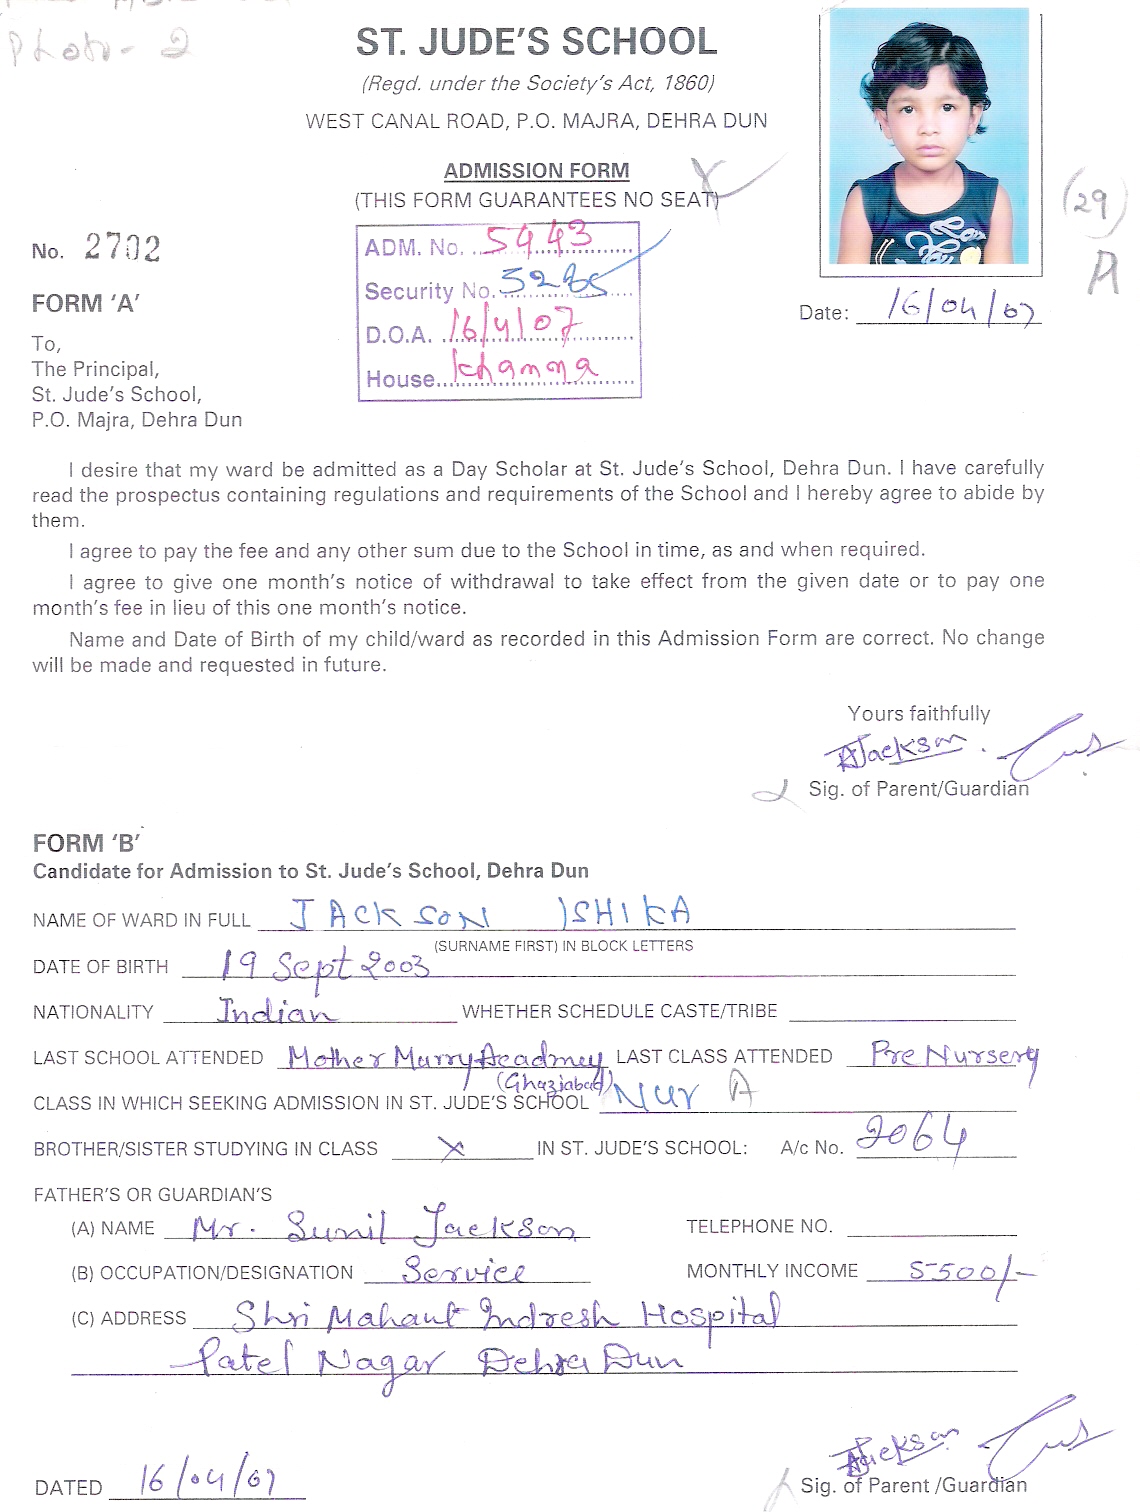 Photo - 2
ST. JUDE'S SCHOOL
(Regd. under the Society's Act, 1860)
WEST CANAL ROAD, P.O. MAJRA, DEHRA DUN
ADMISSION FORM
(THIS FORM GUARANTEES NO SEAT)
(29)
A
No. 2702
ADM. No. 5443
Security No. 5285
D.O.A. 16/4/07
House Khanna
Date: 16/04/07
FORM 'A'
To,
The Principal,
St. Jude's School,
P.O. Majra, Dehra Dun
I desire that my ward be admitted as a Day Scholar at St. Jude's School, Dehra Dun. I have carefully
read the prospectus containing regulations and requirements of the School and I hereby agree to abide by
them.
I agree to pay the fee and any other sum due to the School in time, as and when required.
I agree to give one month's notice of withdrawal to take effect from the given date or to pay one
month's fee in lieu of this one month's notice.
Name and Date of Birth of my child/ward as recorded in this Admission Form are correct. No change
will be made and requested in future.
Yours faithfully
AJackson.
Sig. of Parent/Guardian
FORM 'B'
Candidate for Admission to St. Jude's School, Dehra Dun
NAME OF WARD IN FULL JACKSON ISHIKA
(SURNAME FIRST) IN BLOCK LETTERS
DATE OF BIRTH 19 Sept 2003
NATIONALITY Indian WHETHER SCHEDULE CASTE/TRIBE
LAST SCHOOL ATTENDED Mother Marry Acadmey LAST CLASS ATTENDED Pre Nursery
(Ghaziabad)
CLASS IN WHICH SEEKING ADMISSION IN ST. JUDE'S SCHOOL Nur A
BROTHER/SISTER STUDYING IN CLASS X IN ST. JUDE'S SCHOOL: A/c No. 2064
FATHER'S OR GUARDIAN'S
(A) NAME Mr. Sunil Jackson TELEPHONE NO.
(B) OCCUPATION/DESIGNATION Service MONTHLY INCOME 5500/-
(C) ADDRESS Shri Mahant Indresh Hospital
Patel Nagar Dehra Dun
AJackson
DATED 16/04/07 Sig. of Parent /Guardian